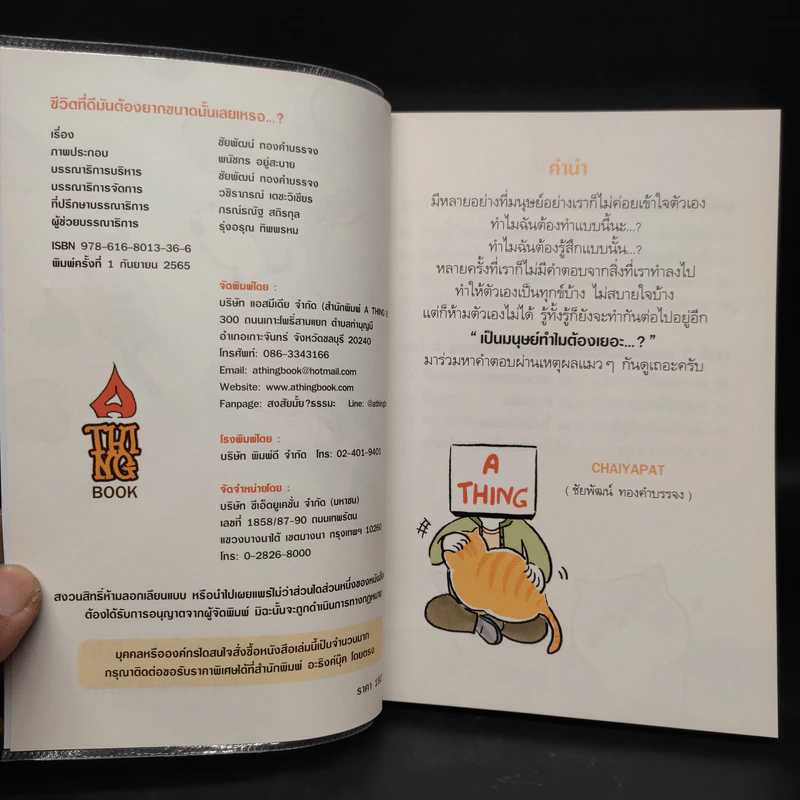 ชีวิตที่ดีมันต้องยากขนาดนั้นเลยเหรอ...?
เรื่อง ชัยพัฒน์ ทองคำบรรจง
ภาพประกอบ พนัชกร อยู่สะบาย
บรรณาธิการบริหาร ชัยพัฒน์ ทองคำบรรจง
บรรณาธิการจัดการ วชิราภรณ์ เตชะวิเชียร
ที่ปรึกษาบรรณาธิการ ภรณ์รณัฐ สถิรกุล
ผู้ช่วยบรรณาธิการ รุ่งอรุณ ทิพพรหม
ISBN 978-616-8013-36-6
พิมพ์ครั้งที่ 1 กันยายน 2565
จัดพิมพ์โดย :
บริษัท แอสมีเดีย จำกัด (สำนักพิมพ์ A THING
300 ถนนเกาะโพธิ์สามแยก ตำบลท่าบุญมี
อำเภอเกาะจันทร์ จังหวัดชลบุรี 20240
โทรศัพท์: 086-3343166
Email: athingbook@hotmail.com
Website: www.athingbook.com
Fanpage: สงสัยมั้ย?ธรรมะ Line:
A
THI
NG
BOOK
โรงพิมพ์โดย :
บริษัท พิมพ์ดี จำกัด โทร: 02-401-9401
จัดจำหน่ายโดย :
บริษัท ซีเอ็ดยูเคชั่น จำกัด (มหาชน)
เลขที่ 1858/87-90 ถนนเทพรัตน
แขวงบางนาใต้ เขตบางนา กรุงเทพฯ 10260
โทร: 0-2826-8000
สงวนสิทธิ์ห้ามลอกเลียนแบบ หรือนำไปเผยแพร่ไม่ว่าส่วนใดส่วนหนึ่งของหนังสือ
ต้องได้รับการอนุญาตจากผู้จัดพิมพ์ มิฉะนั้นจะถูกดำเนินการทางกฎหมาย
บุคคลหรือองค์กรใดสนใจสั่งซื้อหนังสือเล่มนี้เป็นจำนวนมาก
กรุณาติดต่อขอรับราคาพิเศษได้ที่สำนักพิมพ์ อะธิงค์บุ๊ค โดยตรง
ราคา
คำนำ
มีหลายอย่างที่มนุษย์อย่างเราก็ไม่ค่อยเข้าใจตัวเอง
ทำไมฉันต้องทำแบบนี้นะ...?
ทำไมฉันต้องรู้สึกแบบนั้น...?
หลายครั้งที่เราก็ไม่มีคำตอบจากสิ่งที่เราทำลงไป
ทำให้ตัวเองเป็นทุกข์บ้าง ไม่สบายใจบ้าง
แต่ก็ห้ามตัวเองไม่ได้ รู้ทั้งรู้ก็ยังจะทำกันต่อไปอยู่อีก
“ เป็นมนุษย์ทำไมต้องเยอะ...? ”
มาร่วมหาคำตอบผ่านเหตุผลแมว ๆ กันดูเถอะครับ
A
THING
CHAIYAPAT
( ชัยพัฒน์ ทองคำบรรจง )